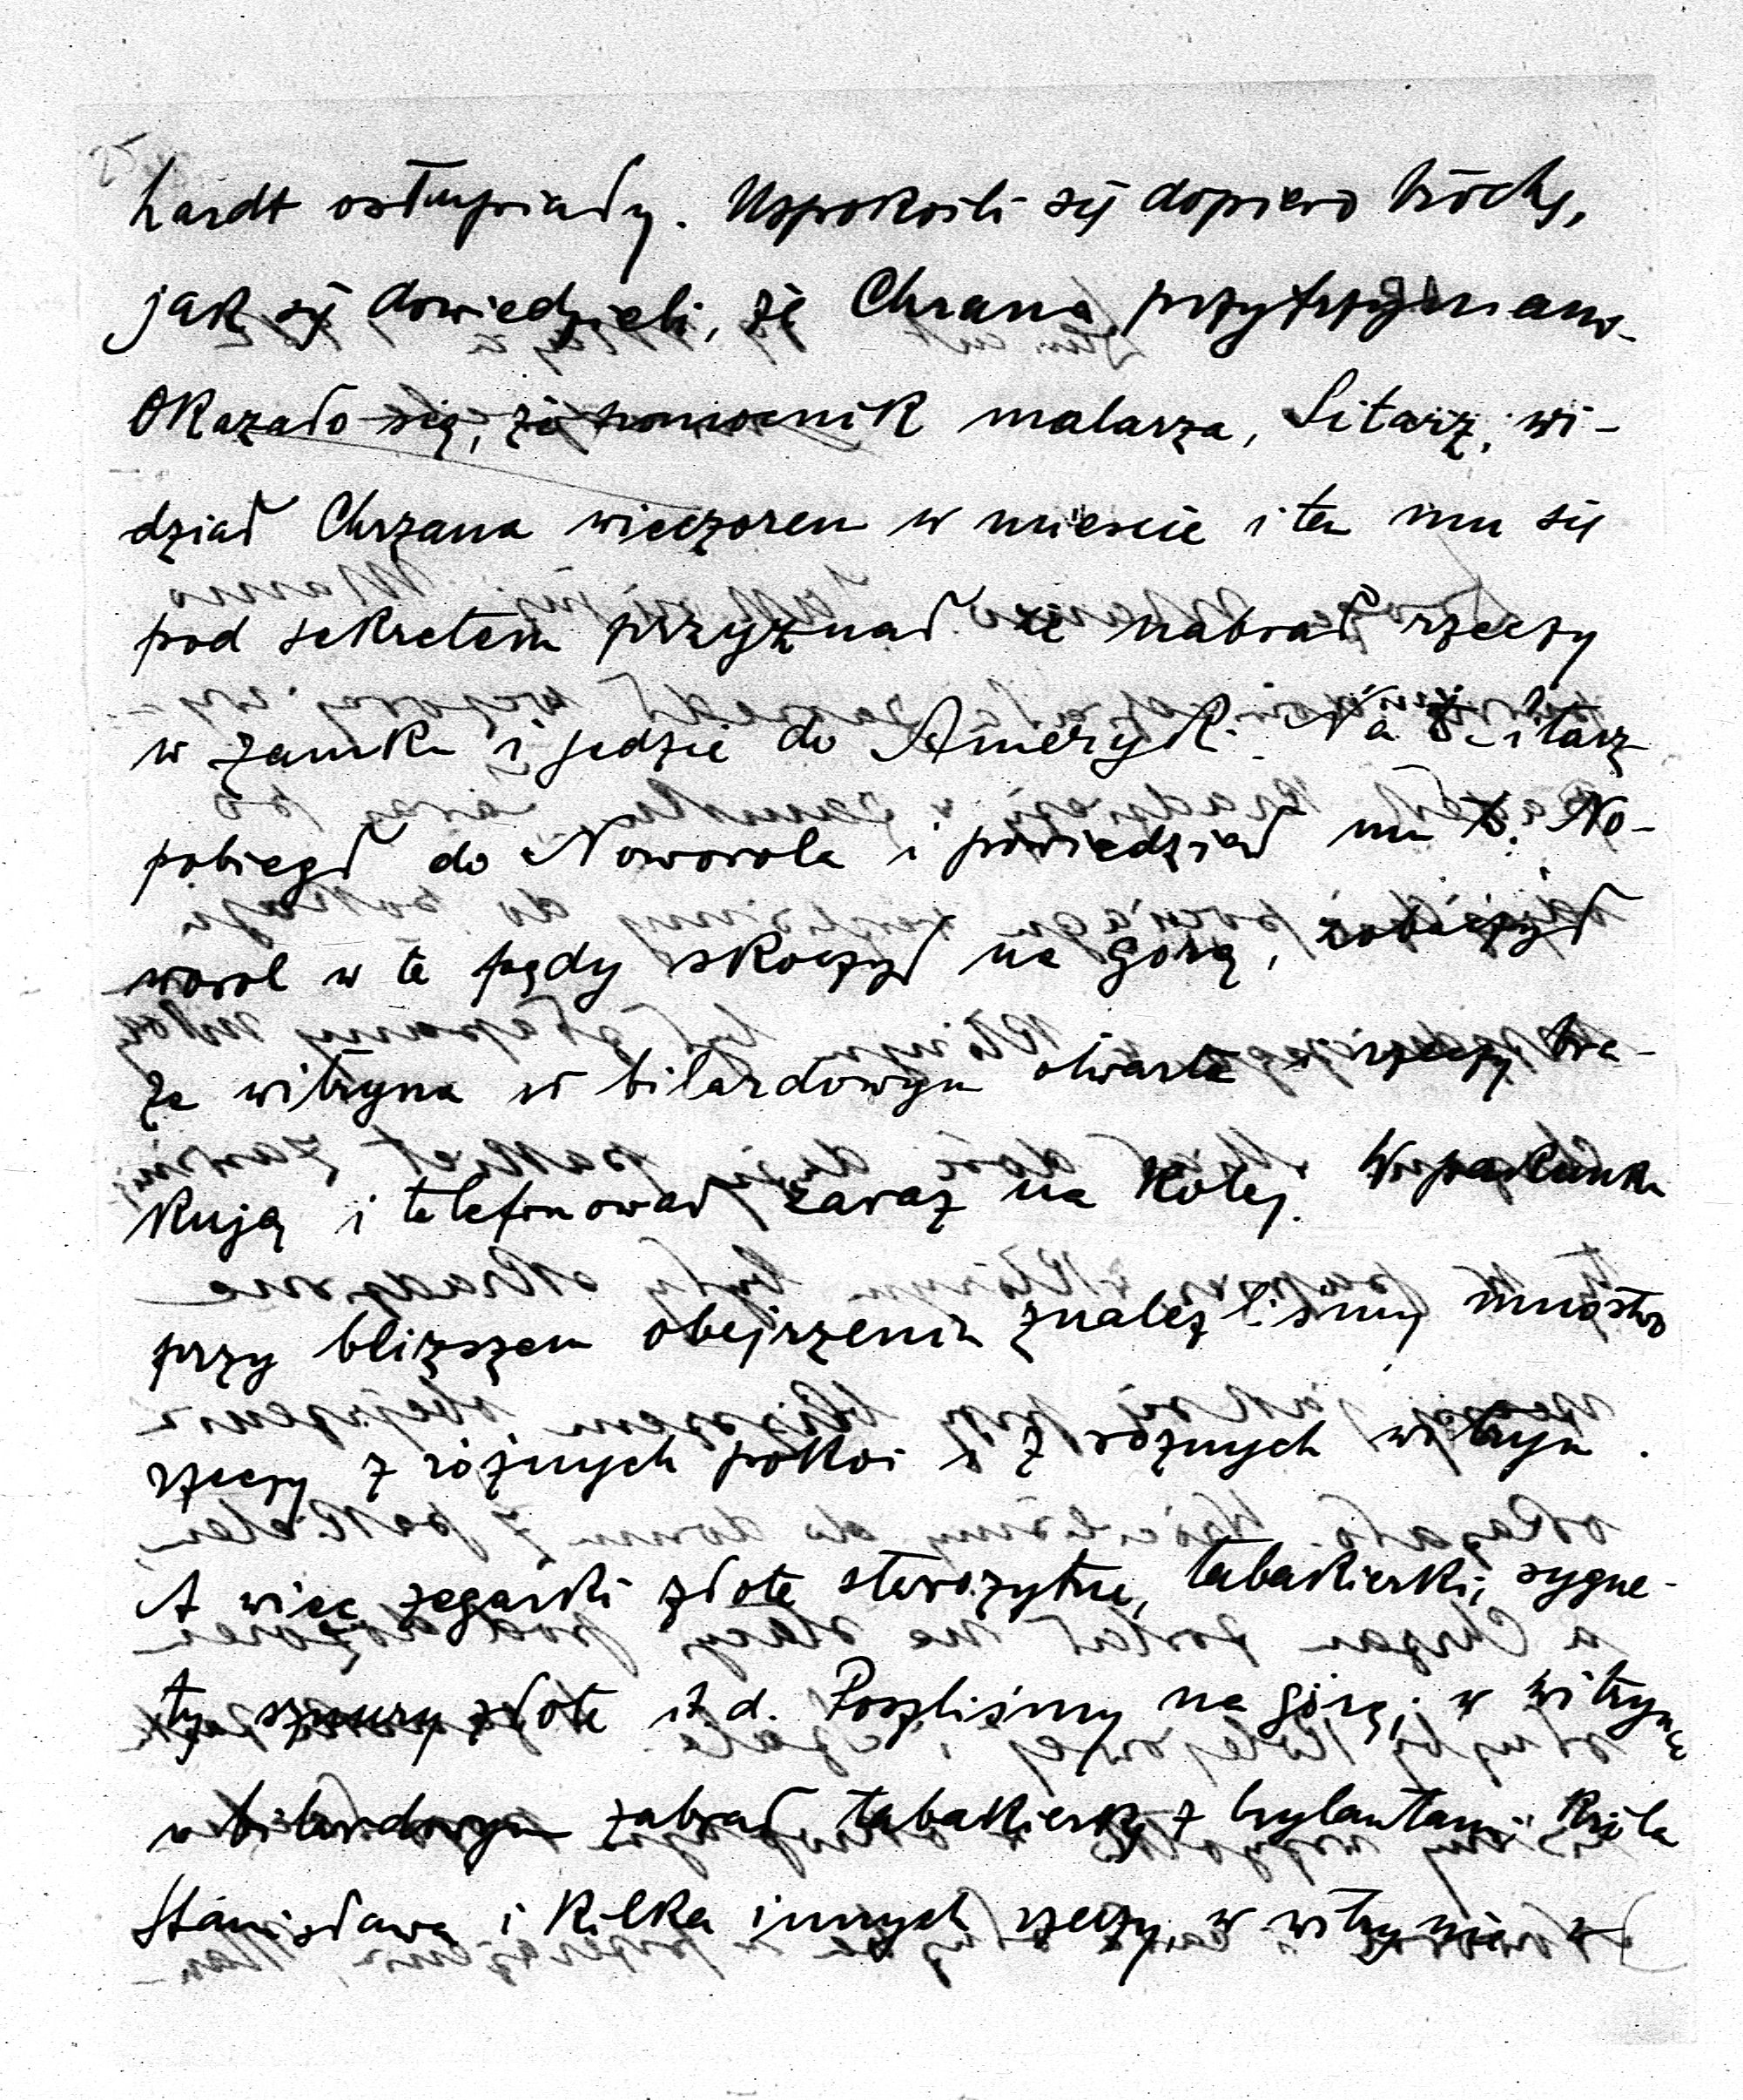 25
hardt osłupiały. Uspokoili się dopiero trochę,
jak się dowiedzieli, że Chrana przytrzymano.
Okazało się, że pomocnik malarza, Sitarz, wi-
dział Chrzana wieczorem w mieście i ten mu się
pod sekretem przyznał że nabrał rzeczy
w zamku i jedzie do Ameryki. Na to Sitarz
pobiegł do Noworola i powiedział mu to. No-
worol w te pędy skoczył na górę, zobaczył
że witryna w bilardowym otwarta i rzeczy bra-
kują i telefonował zaraz na kolej. W pakunku
przy bliższem obejrzeniu znaleźliśmy mnóstwo
rzeczy z różnych pokoi i z różnych witryn.
A więc zegarki złote starożytne, tabakierki, sygne-
ty, sznury złote it.d. Poszliśmy na górę; w witrynie
w bilardowym zabrał tabakierkę z brylantami Króla
Stanisława i kilka innych rzeczy, w witrynie w